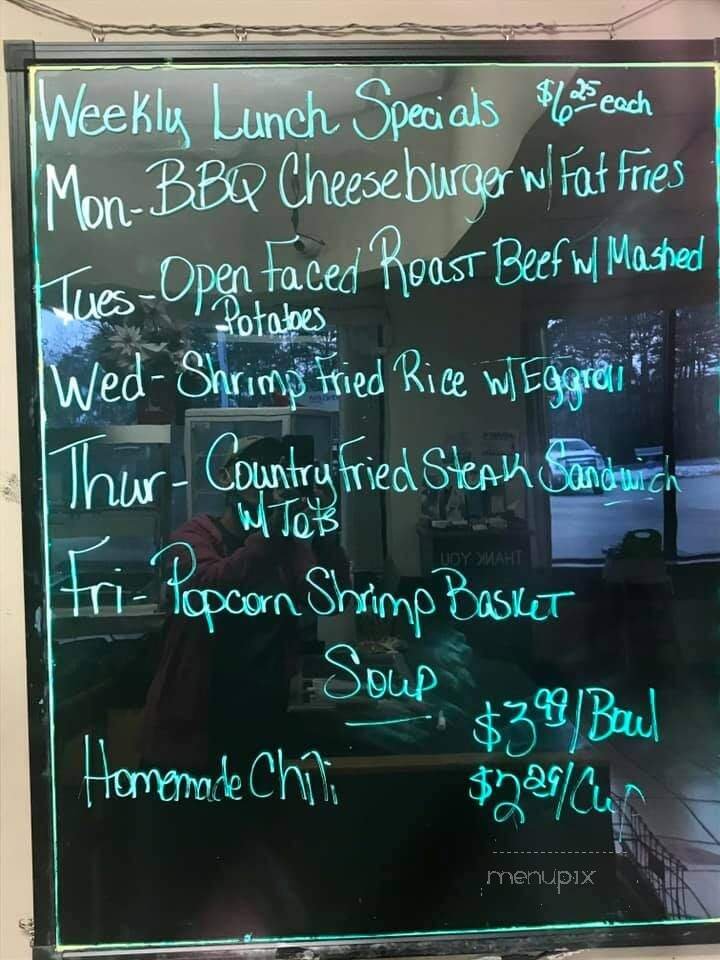 Weekly Lunch Specials $6.25 each
Mon- BBQ Cheeseburger w/ Fat Fries
Tues- Open Faced Roast Beef w/ Mashed
Potatoes
Wed- Shrimp Fried Rice w/ Eggroll
Thur- Country Fried Steak Sandwich
w/ Tots
Fri- Popcorn Shrimp Basket
Soup
$3.99/Bowl
Homemade Chili
$2.29/Cup
THANK YOU
menupix